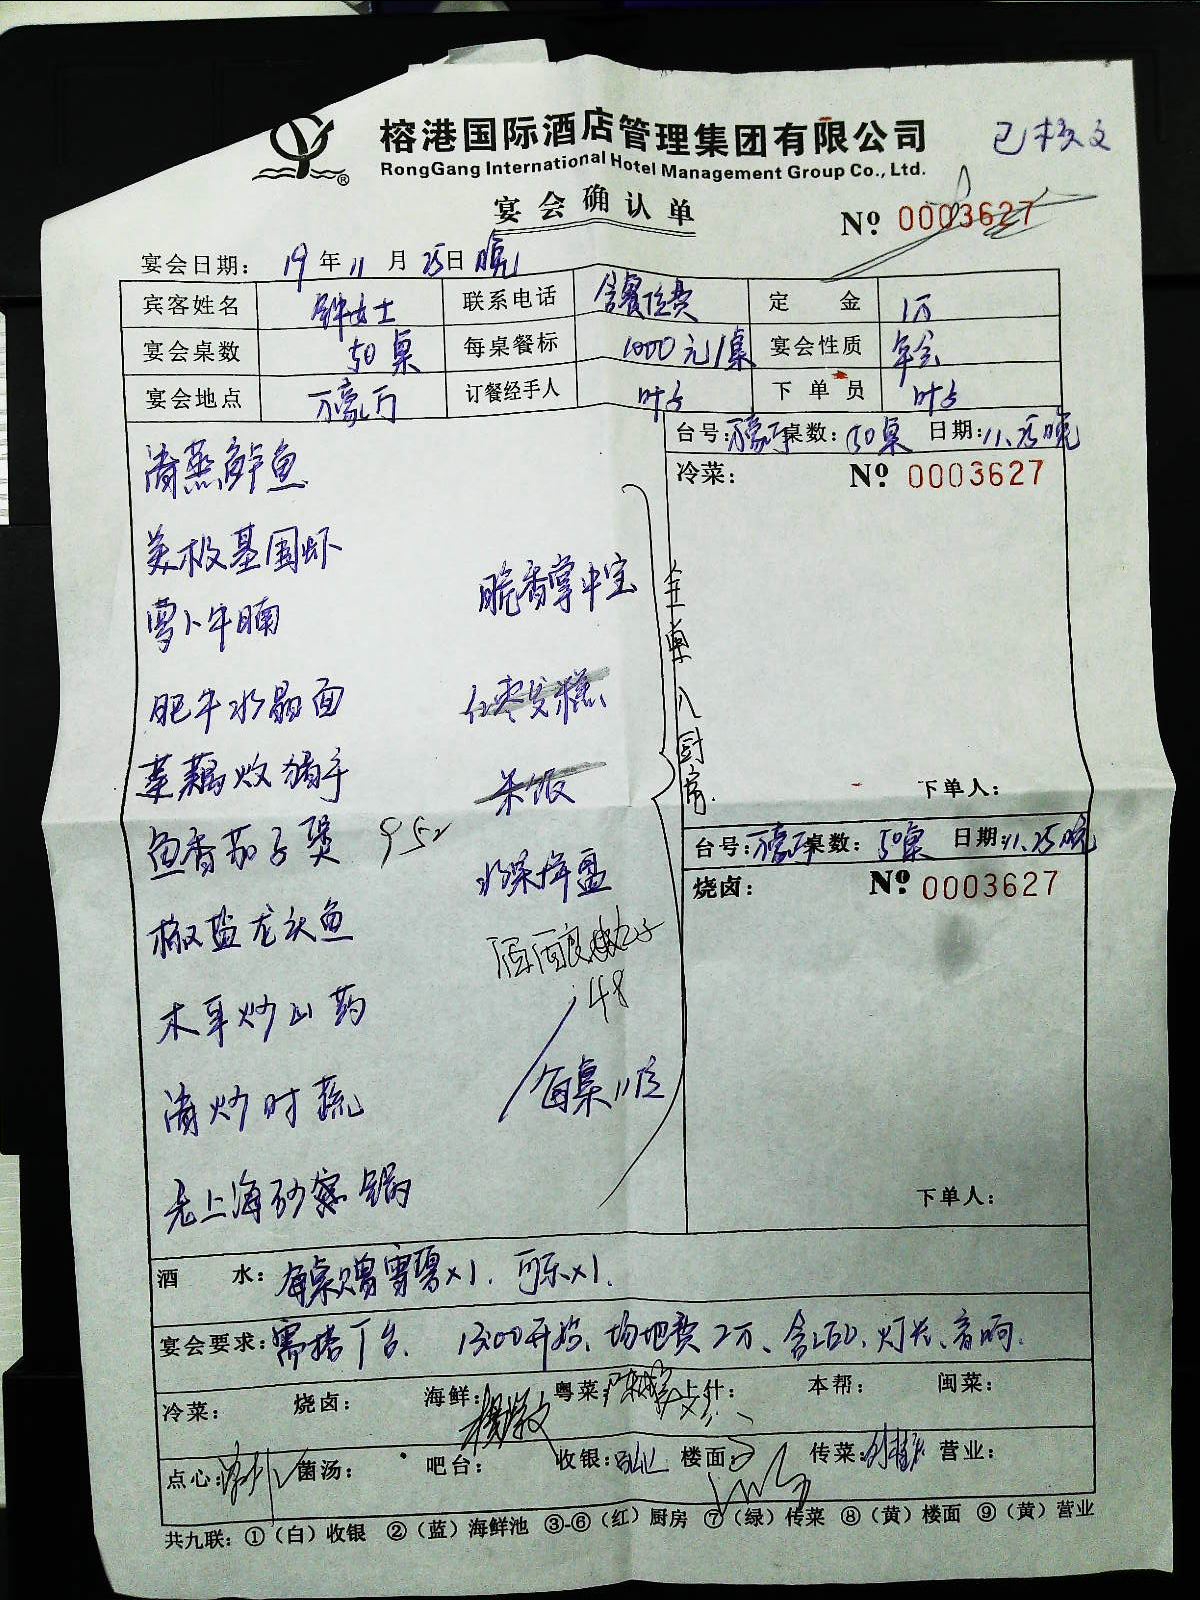 榕港国际酒店管理集团有限公司
RongGang International Hotel Management Group Co., Ltd.
宴会确认单
№ 0003627
宴会日期: 19年11月25日晚
宾客姓名 钟女士 联系电话 含餐位费 定金 1万
宴会桌数 50桌 每桌餐标 1000元/桌 宴会性质 年会
宴会地点 万豪厅 订餐经手人 下单员
台号: 万豪厅 桌数: 50桌 日期: 11.25晚
冷菜: № 0003627
清蒸鲜鱼
美极基围虾
萝卜牛腩
肥牛水晶面
莲藕炆猪手
鱼香茄子煲 952
椒盐龙头鱼
木耳炒山药
清炒时蔬
老上海砂窝锅
脆香掌中宝
红枣发糕
米饭
水果拼盘
48
每桌11位
全单入厨房.
下单人:
台号: 万豪厅 桌数: 50桌 日期: 11.25晚
烧卤: № 0003627
下单人:
酒水: 每桌赠雪碧x1. 可乐x1.
宴会要求: 需搭T台、13:00开始、场地费2万、含LED、灯光、音响.
冷菜: 烧卤: 海鲜: 粤菜: 上什: 本帮: 闽菜:
点心: 菌汤: 吧台: 收银: 楼面: 传菜: 营业:
共九联: ①(白)收银 ②(蓝)海鲜池 ③-⑥(红)厨房 ⑦(绿)传菜 ⑧(黄)楼面 ⑨(黄)营业